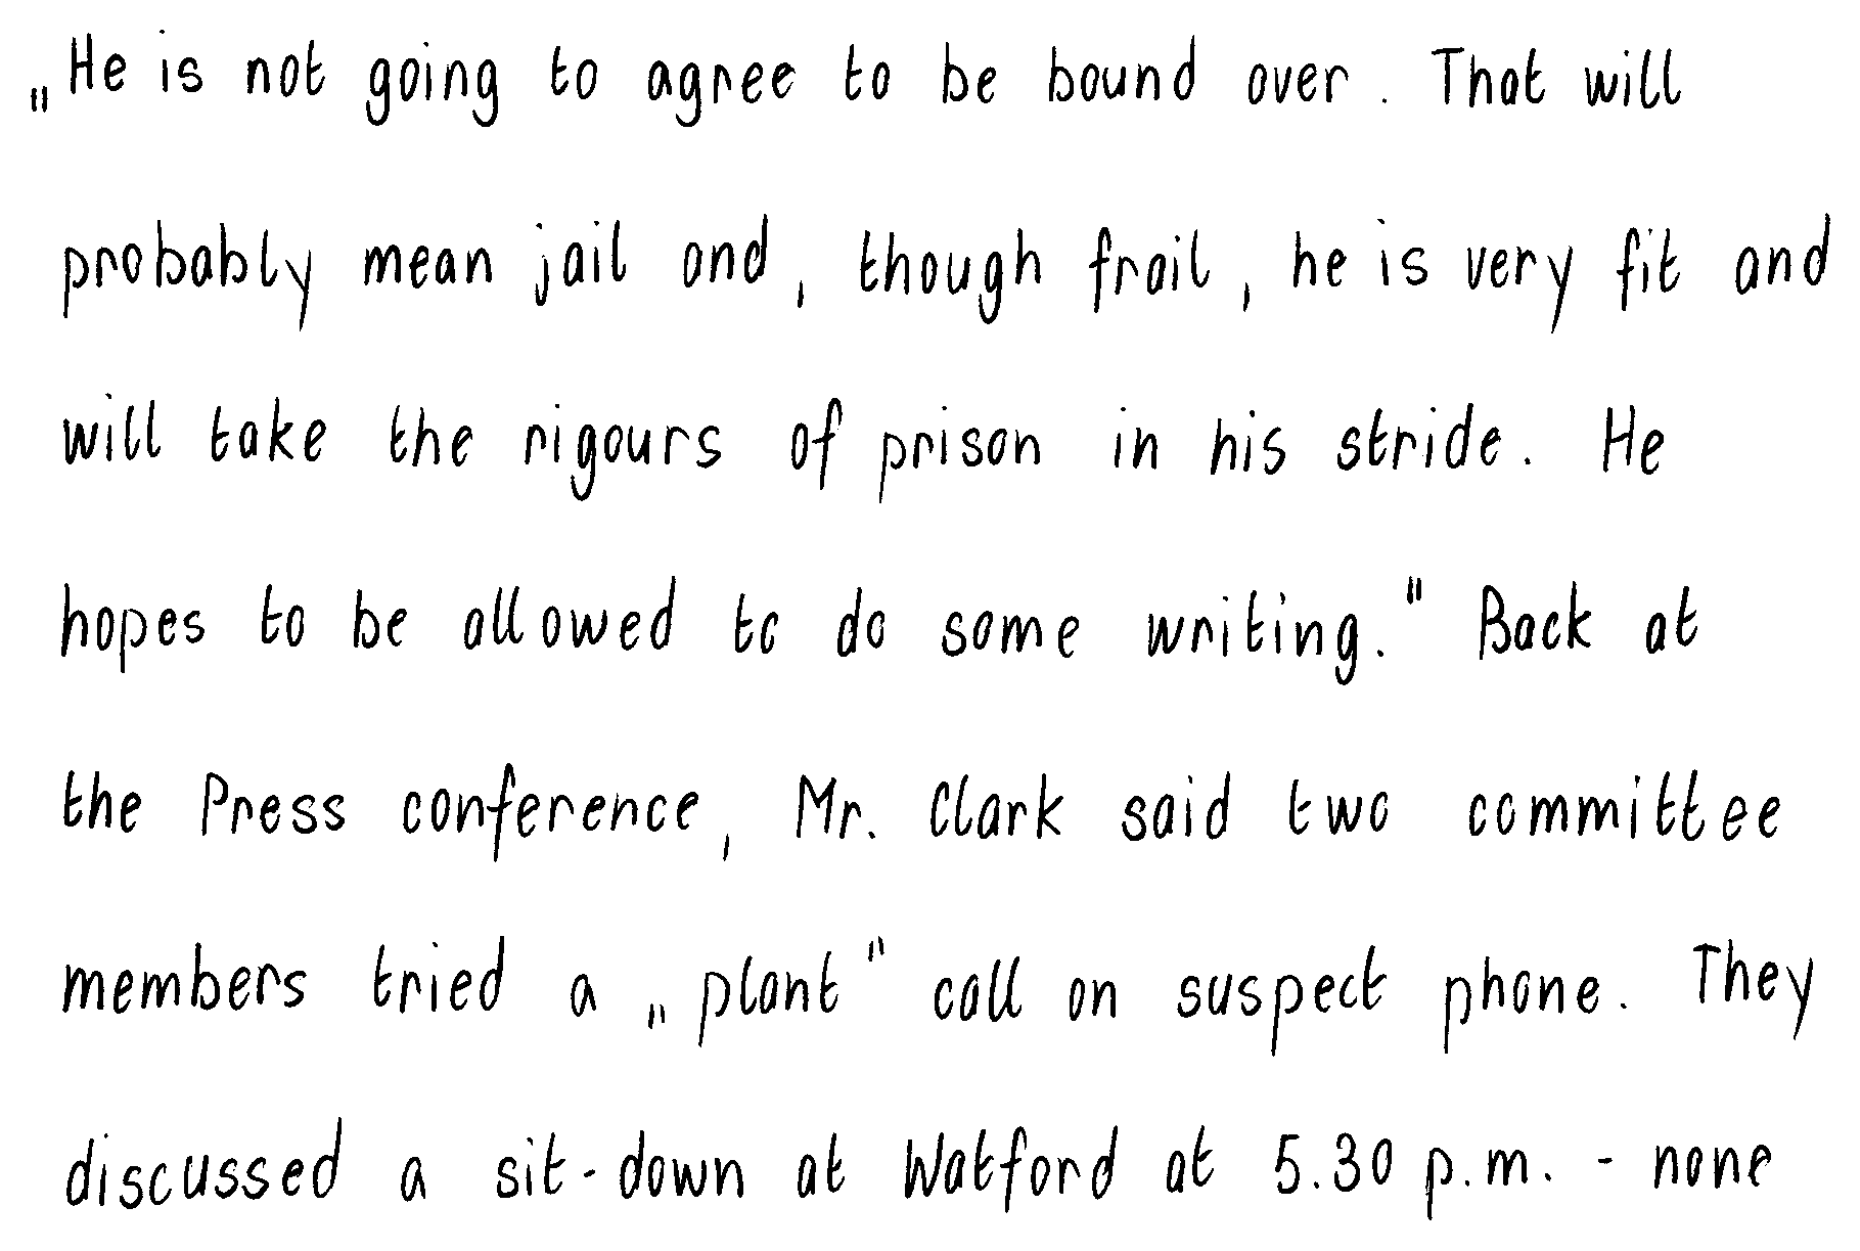 „He is not going to agree to be bound over. That will
probably mean jail and, though frail, he is very fit and
will take the rigours of prison in his stride. He
hopes to be allowed to do some writing." Back at
the Press conference, Mr. Clark said two committee
members tried a „plant" call on suspect phone. They
discussed a sit-down at Watford at 5.30 p.m. - none